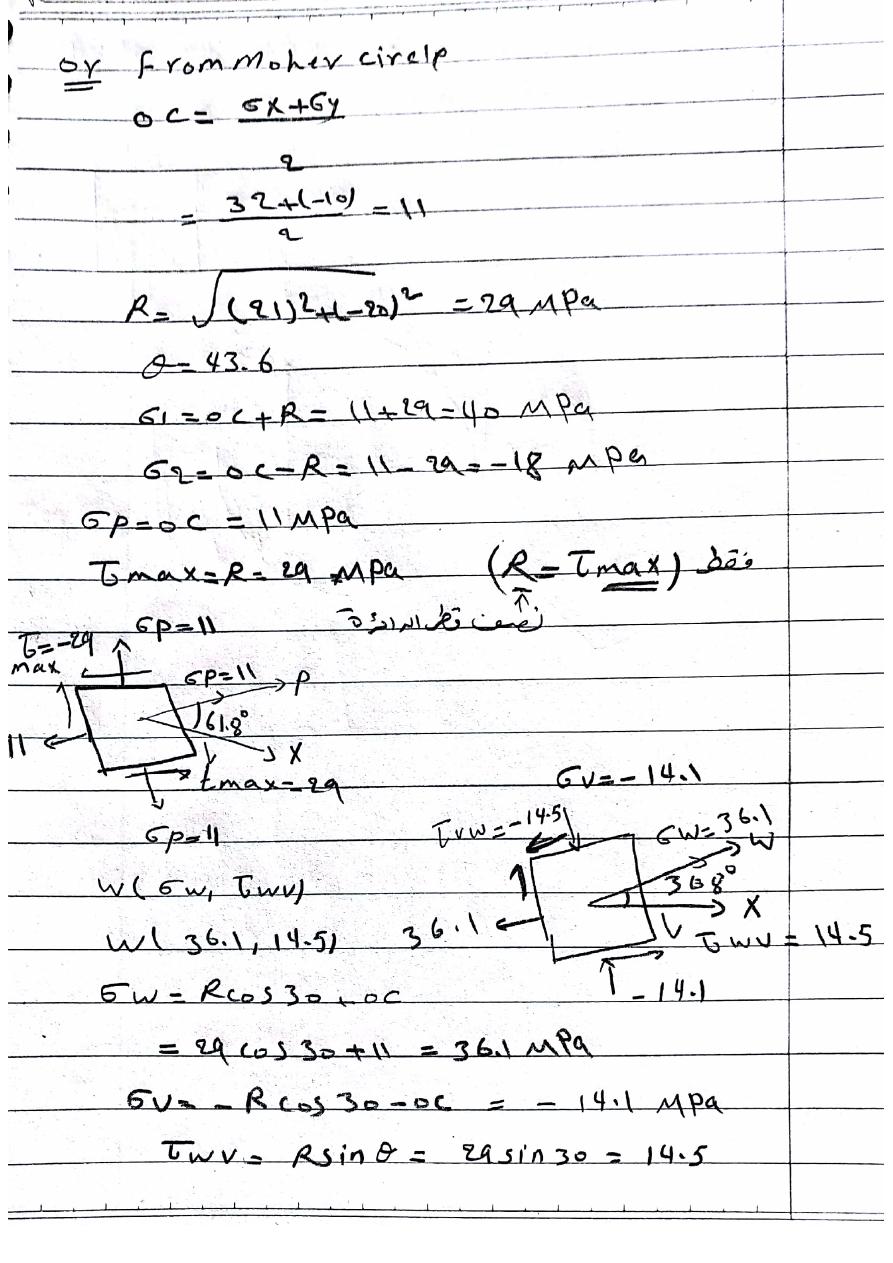 or from moher circle
oc = σx+σy
2
= 32+(-10) = 11
2
R = √(21)²+(-20)² = 29 MPa
θ = 43.6
σ1 = oc + R = 11+29 = 40 MPa
σ2 = oc - R = 11 - 29 = -18 MPa
σp = oc = 11 MPa
τmax = R = 29 MPa (R = τmax) فقط
نصف قطر الدائرة
τ = -29
max
σp = 11
σp = 11
P
61.8°
11
X
τmax = 29
σp = 11
σv = -14.1
τvw = -14.5
σw = 36.1
W
X
36.1
V
τwv = 14.5
-14.1
w(σw, τwv)
w(36.1, 14.5)
σw = Rcos30 + oc
= 29 cos 30 + 11 = 36.1 MPa
σv = -Rcos30 - oc = -14.1 MPa
τwv = Rsinθ = 29 sin 30 = 14.5